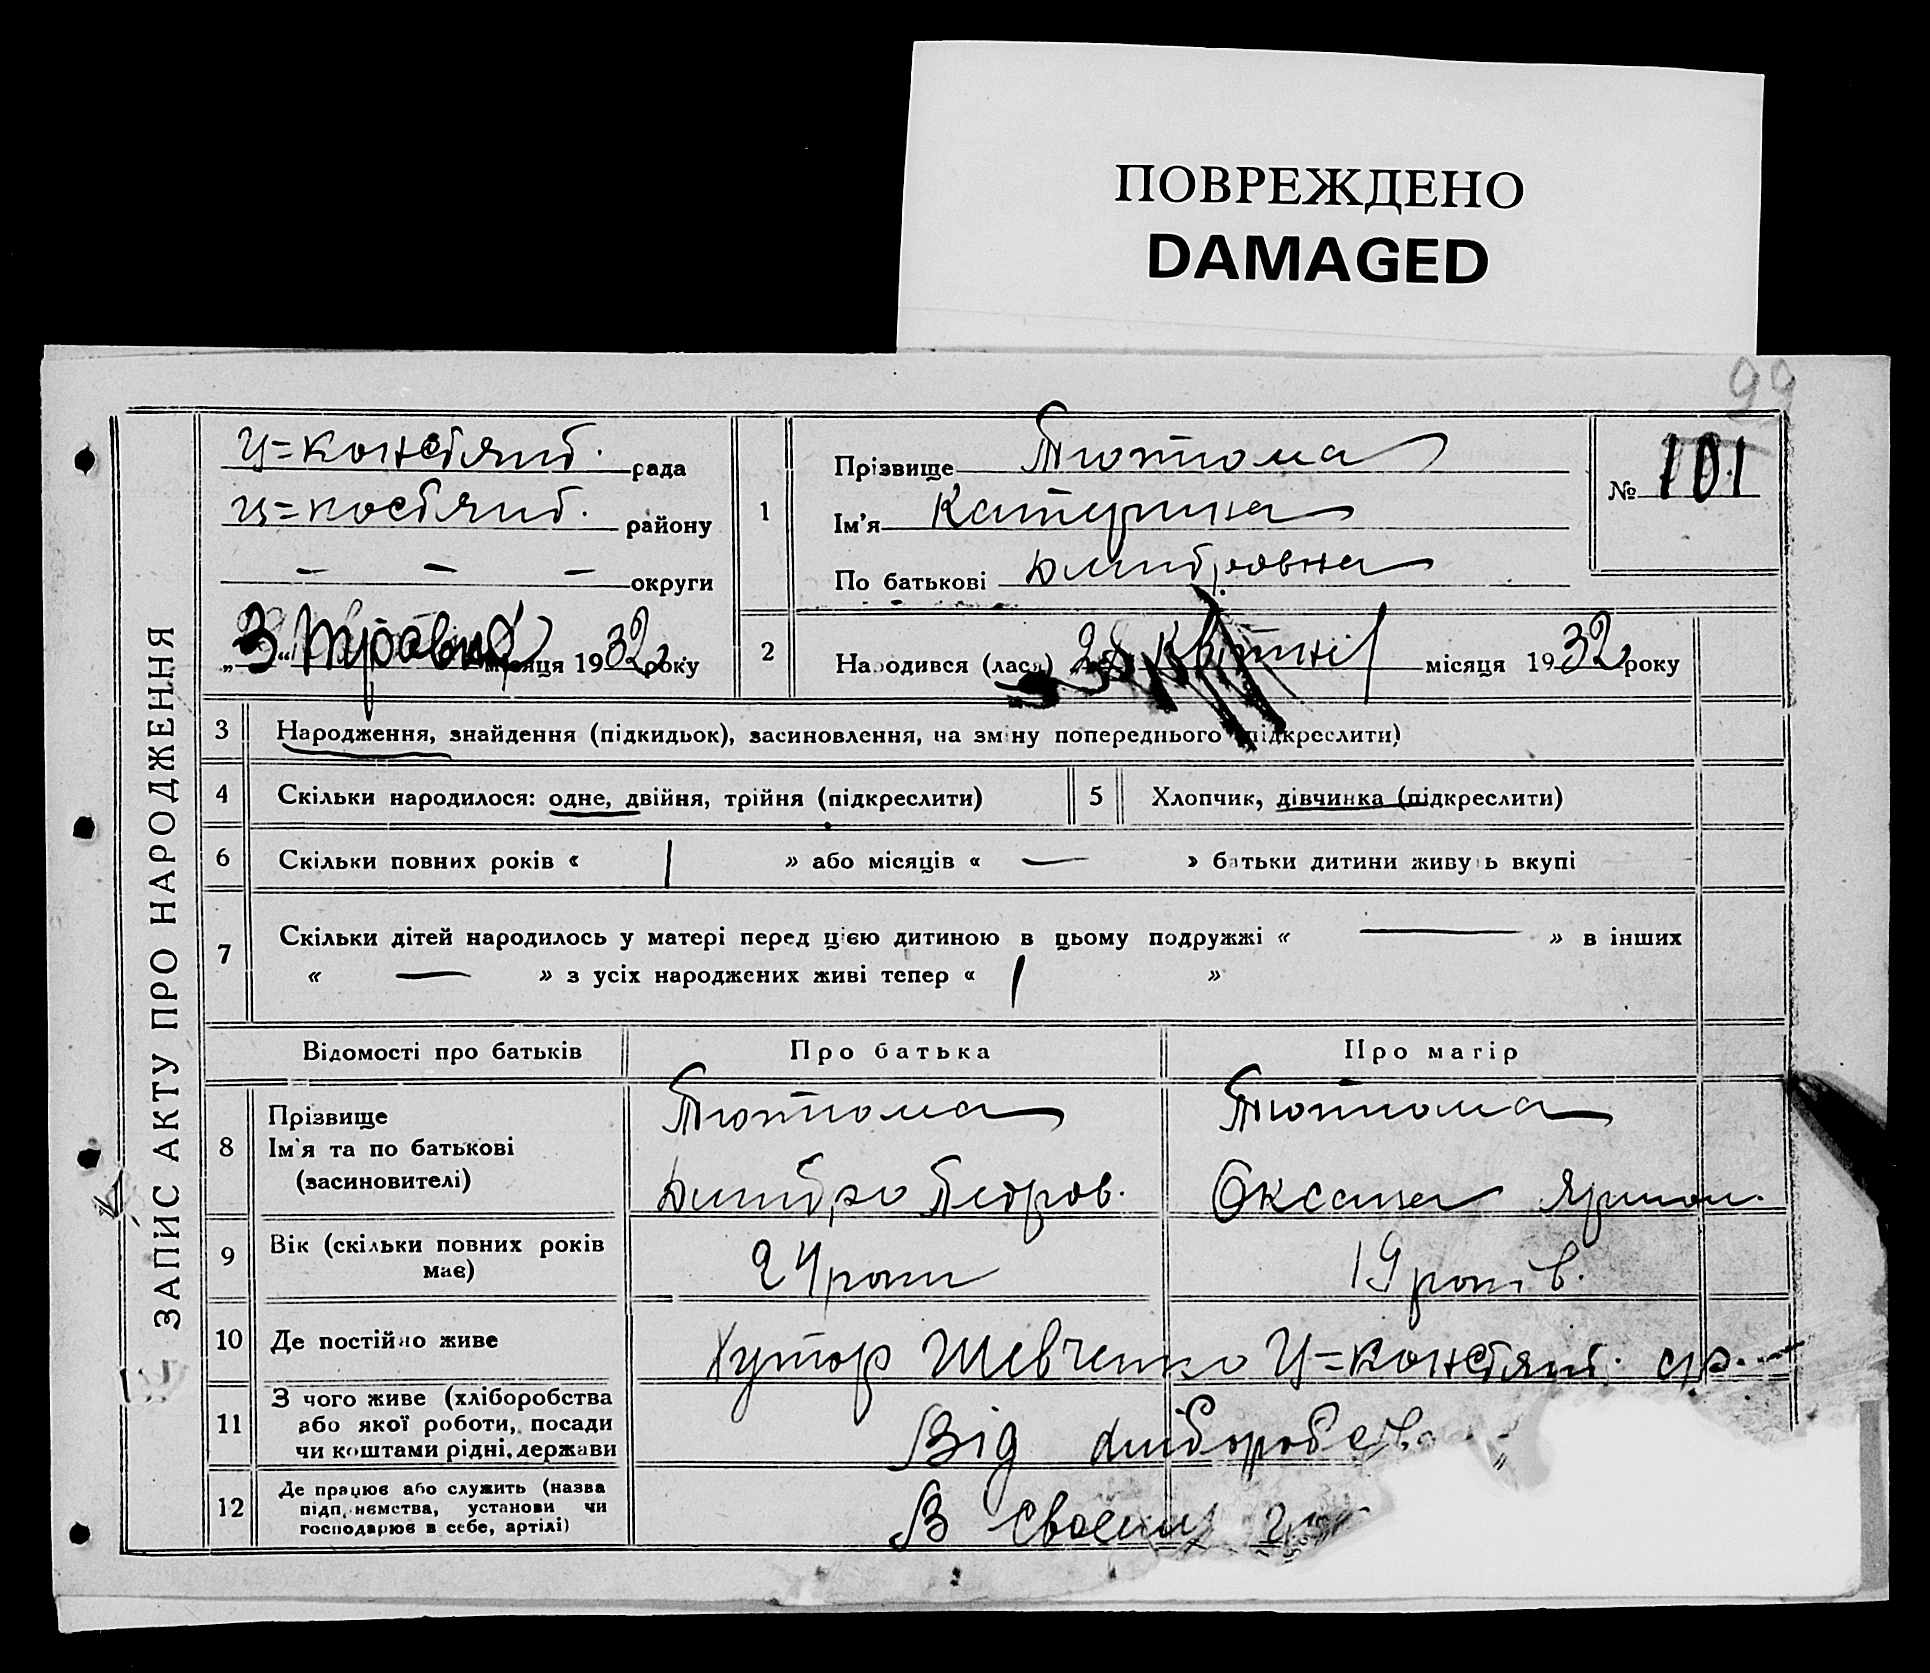 ПОВРЕЖДЕНО
DAMAGED
99
ЗАПИС АКТУ ПРО НАРОДЖЕННЯ
Ц=Констянт. рада
Ц=костянт. району
— — — округи
„3“ Травня місяця 1932 року
1
Прізвище Тютюма
Ім'я Катерина
По батькові Дмитровна
№ 101
2
Народився (лася) квітня місяця 1932 року
3 Народження, знайдення (підкидьок), засиновлення, на зміну попереднього (підкреслити)
4 Скільки народилося: одне, двійня, трійня (підкреслити)
5 Хлопчик, дівчинка (підкреслити)
6 Скільки повних років « 1 » або місяців « — » батьки дитини живуть вкупі
7 Скільки дітей народилось у матері перед цією дитиною в цьому подружжі « — » в інших
« — » з усіх народжених живі тепер « 1 »
Відомості про батьків Про батька Про матір
8 Прізвище
Ім'я та по батькові
(засновителі)
Тютюма
Дмитро Петров.
Тютюма
Оксана Ярмол.
9 Вік (скільки повних років
має)
24 роки
19 років.
10 Де постійно живе
Хутор Шевченко Ц=констянт. с/р.
11 З чого живе (хліборобства
або якої роботи, посади
чи коштами рідні, держави
Від хліборобства
12 Де працює або служить (назва
підприємства, установи чи
господарює в себе, артілі)
В своєму